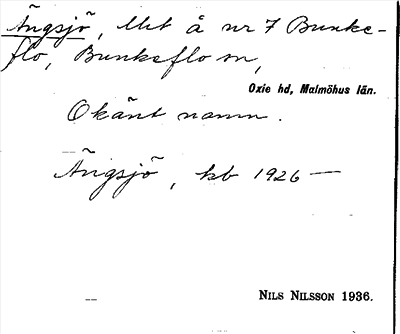 Ängsjö, lht å nr 7 Bunke-
flo, Bunkeflo sn,
Oxie hd, Malmöhus län.
Okänt namn.
Ängsjö, kb 1926 —
NILS NILSSON 1936.